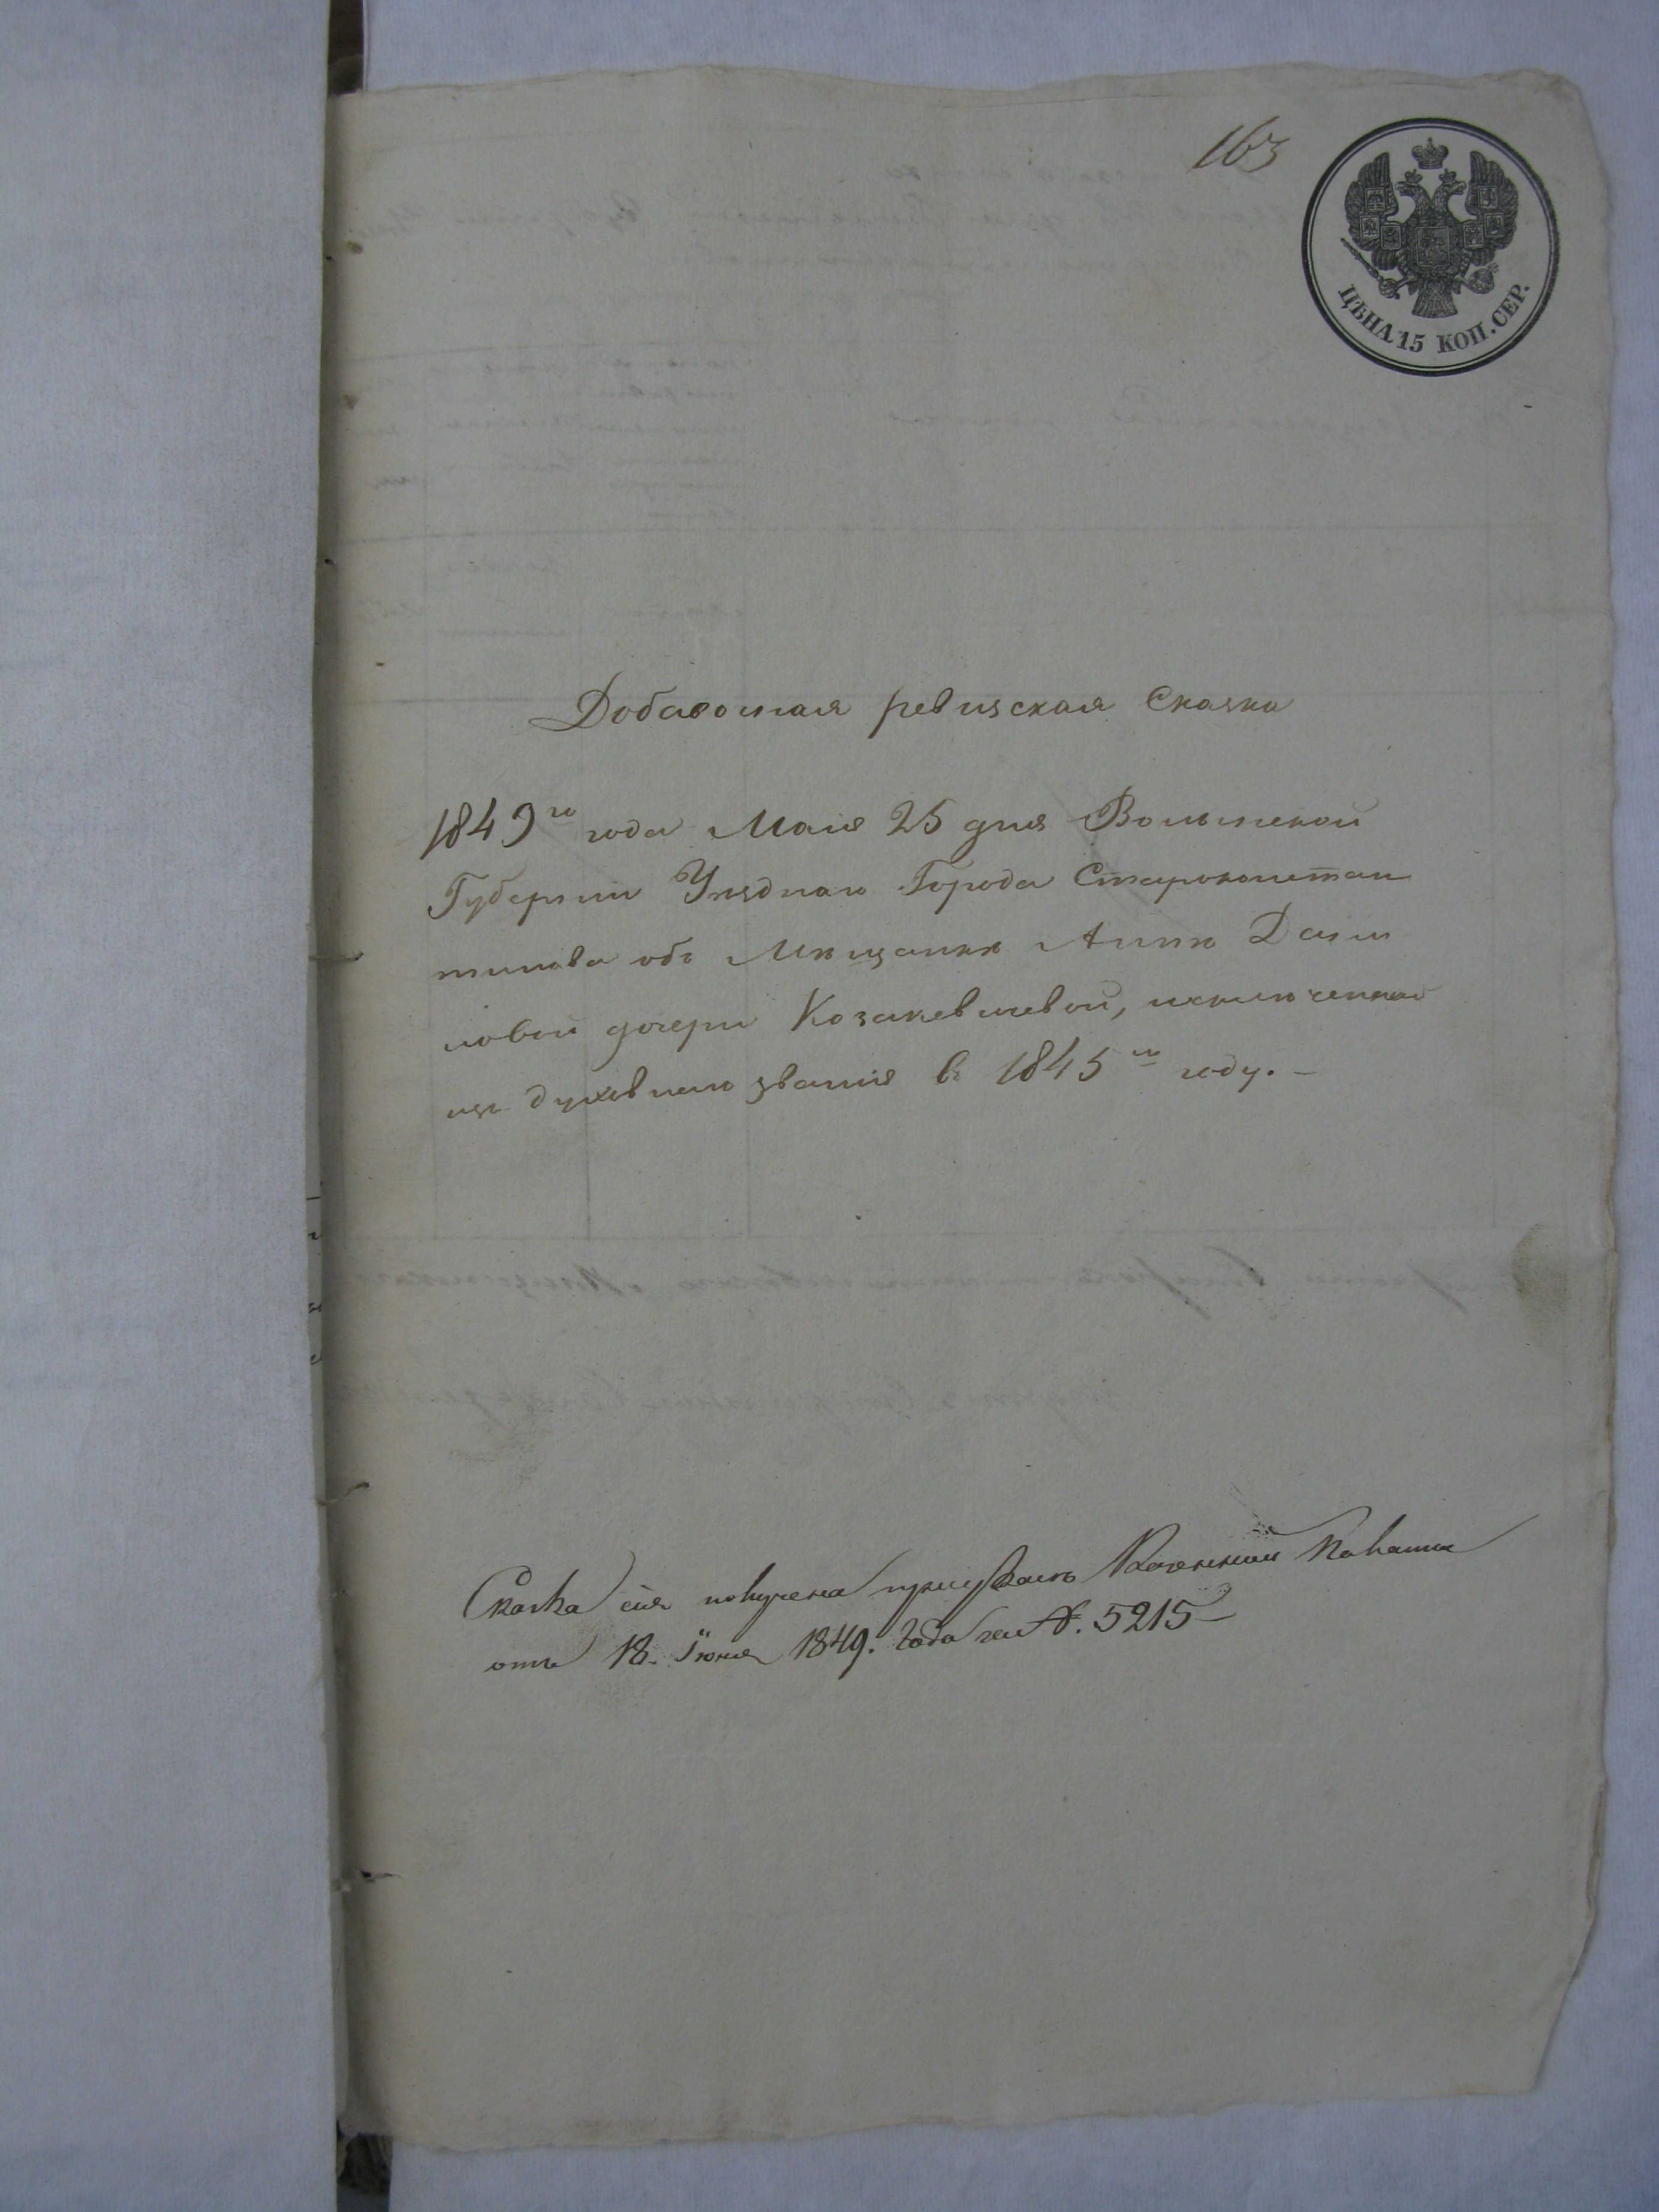 163
ЦѢНА 15 КОП. СЕР.
Добавочная ревизская Сказка
1849го года Маія 25 дня Волынской
Губерніи Уѣзднаго Города Староконстан
тинова объ Мѣщанкѣ Аннѣ Дани
ловой дочери Козакевичевой, исключенной
изъ духовнаго званія въ 1845м году.
Сказка сія получена при указѣ Казенной Палаты
отъ 18. Іюня 1849. года за №. 5215